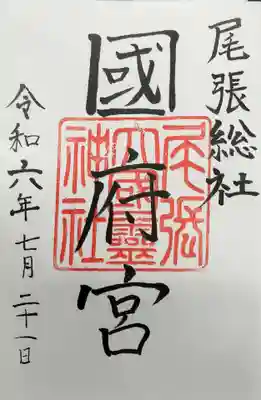 尾張総社
國府宮
尾張
大國靈
神社
令和六年七月二十一日